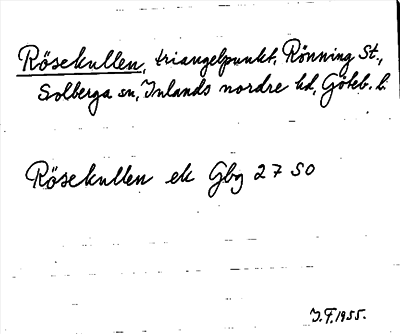 Rösekullen, triangelpunkt, Rönning St.,
Solberga sn, Inlands nordre hd, Göteb. l.
Rösekullen ek Gbg 27 SO
I.F. 1955.